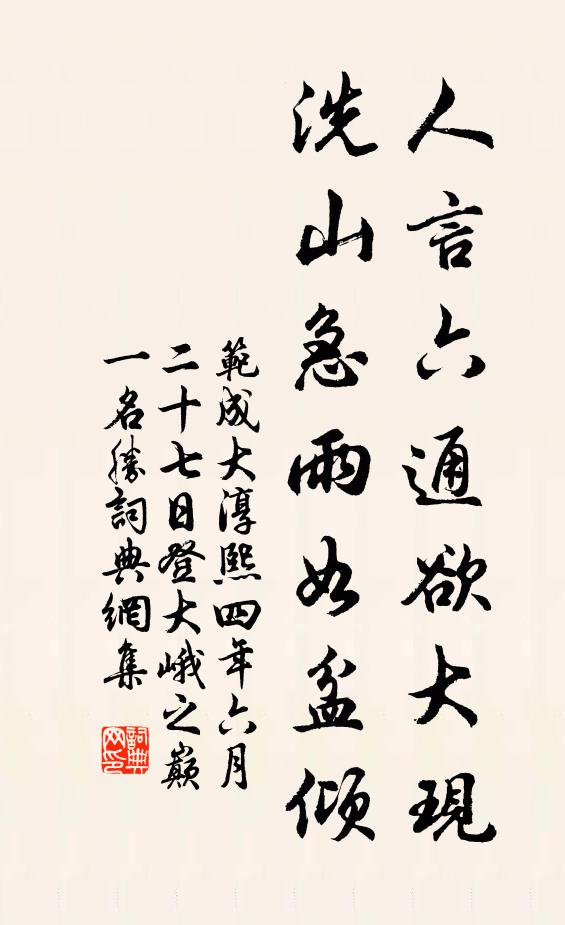 人言六通欲大現
洗山急雨如盆傾
範成大淳熙四年六月
二十七日登大峨之巔
一名勝詞典網集
詞典
网印